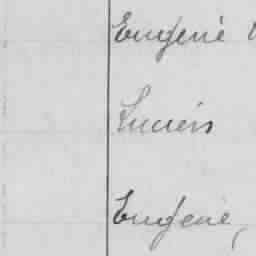 Eugenè
Lucien
Eugene,